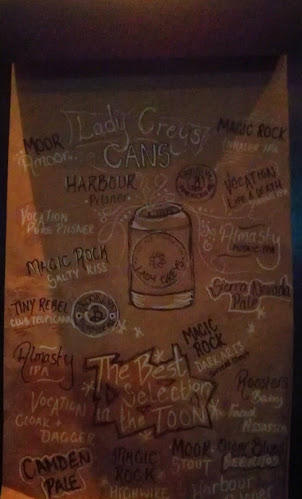 Lady Grey's
CANS
MOOR
Amoor
HARBOUR
Pilsner
MAGIC ROCK
INHALER IPA
VOCATION
LIFE & DEATH
VOCATION
PURE PILSNER
Almasty
MAGIC ROCK
SALTY KISS
LADY GREY'S
Sierra Nevada
Pale
TINY REBEL
CLUB TROPICANA
Almasty
IPA
MAGIC
ROCK
DARK ARTS
The Best
Selection
in the
TOON
VOCATION
CLOAK +
DAGGER
Roosters
Baby
Faced
Assassin
CAMDEN
PALE
MAGIC
ROCK
HIGHWIRE
MOOR
STOUT
Harbour